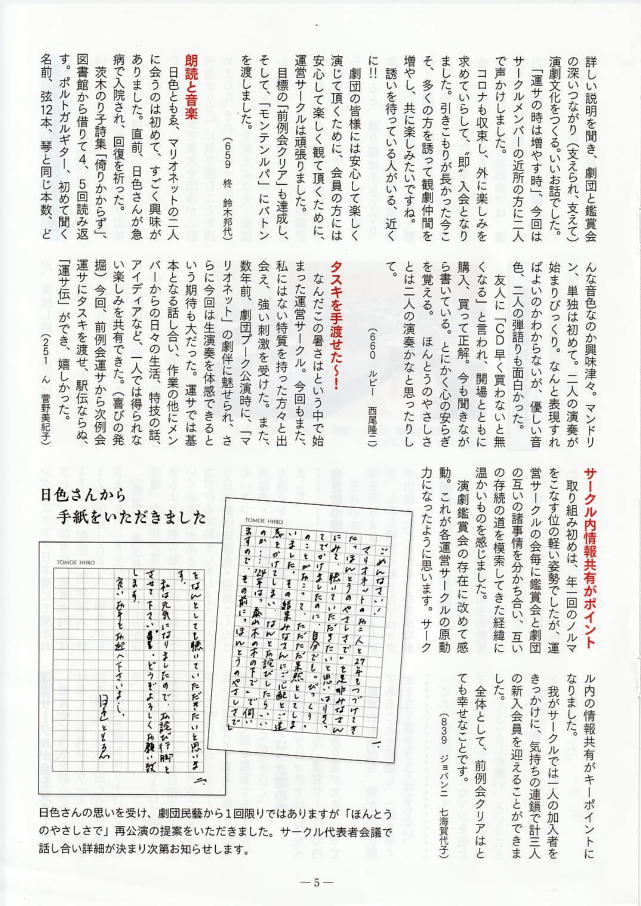 詳しい説明を聞き、劇団と鑑賞会
の深いつながり（支えられ、支えて）
演劇文化をつくる。いいお話でした。
「運サの時は増やす時」、今回は
サークルメンバーの近所の方に二人
で声かけしました。
コロナも収束し、外に楽しみを
求めていらして、〝即〟入会となり
ました。引きこもりが長かった今こ
そ、多くの方を誘って観劇仲間を
増やし、共に楽しみたいですね。
誘いを待っている人がいる、近く
に!!
劇団の皆様には安心して楽しく
演じて頂くために、会員の方には
安心して楽しく観て頂くために、
運営サークルは頑張りました。
目標の「前例会クリア」も達成し、
そして、「モンテンルパ」にバトン
を渡しました。
（659　柊　鈴木邦代）
朗読と音楽
日色ともゑ、マリオネットの二人
に会うのは初めて、すごく興味が
ありました。直前、日色さんが急
病で入院され、回復を祈った。
茨木のり子詩集「倚りかからず」、
図書館から借りて4、5回読み返
す。ポルトガルギター、初めて聞く
名前、弦12本、琴と同じ本数、ど
んな音色なのか興味津々。マンドリ
ン、単独は初めて。二人の演奏が
始まりびっくり。なんと表現すれ
ばよいのかわからないが、優しい音
色、二人の弾語りも面白かった。
友人に「CD早く買わないと無
くなる」と言われ、開場とともに
購入、買って正解。今も聞きなが
ら書いている。とにかく心の安らぎ
を覚える。　ほんとうのやさしさ
とは二人の演奏かなと思ったりし
て。
（660　ルビー　西尾隆二）
タスキを手渡せた〜！
なんだこの暑さはという中で始
まった運営サークル。今回もまた、
私にはない特質を持った方々と出
会え、強い刺激を受けた。また、
数年前、劇団プーク公演時に、「マ
リオネット」の劇伴に魅せられ、さ
らに今回は生演奏を体感できると
いう期待も大だった。運サでは基
本となる話し合い、作業の他にメン
バーからの日々の生活、特技の話、
アイディアなど、一人では得られな
い楽しみを共有できた。（喜びの発
掘）今回、前例会運サから次例会
運サにタスキを渡せ、駅伝ならぬ、
「運サ伝」ができ、嬉しかった。
（251　ん　菅野美紀子）
サークル内情報共有がポイント
取り組み初めは、年一回のノルマ
をこなす位の軽い姿勢でしたが、運
営サークルの会毎に鑑賞会と劇団
の互いの諸事情を分かち合い、互い
の存続の道を模索してきた経緯に
温かいものを感じました。
演劇鑑賞会の存在に改めて感
動。これが各運営サークルの原動
力になったように思います。サーク
ル内の情報共有がキーポイントに
なりました。
我がサークルでは一人の加入者を
きっかけに、気持ちの連鎖で計三人
の新入会員を迎えることができま
した。
全体として、前例会クリアはと
ても幸せなことです。
（839　ジョバンニ　七海賀代子）
日色さんから
手紙をいただきました
TOMOE HIIRO
ごめんなさい！
マリオネットのお二人と27年もつづけてき
た〝ほんとうのやさしさで〟を是非みなさん
にみて、聴いていただきたいと思いはりき
TOMOE HIIRO
をなんとしても聴いていただきたいと思いま
す。
私は元気になりましたので、お詫び行脚を
させて下さい。どうぞよろしくお願い致
します。
良いお年をお迎え下さいませ。
日色ともゑ
日色さんの思いを受け、劇団民藝から1回限りではありますが「ほんとう
のやさしさで」再公演の提案をいただきました。サークル代表者会議で
話し合い詳細が決まり次第お知らせします。
— 5 —